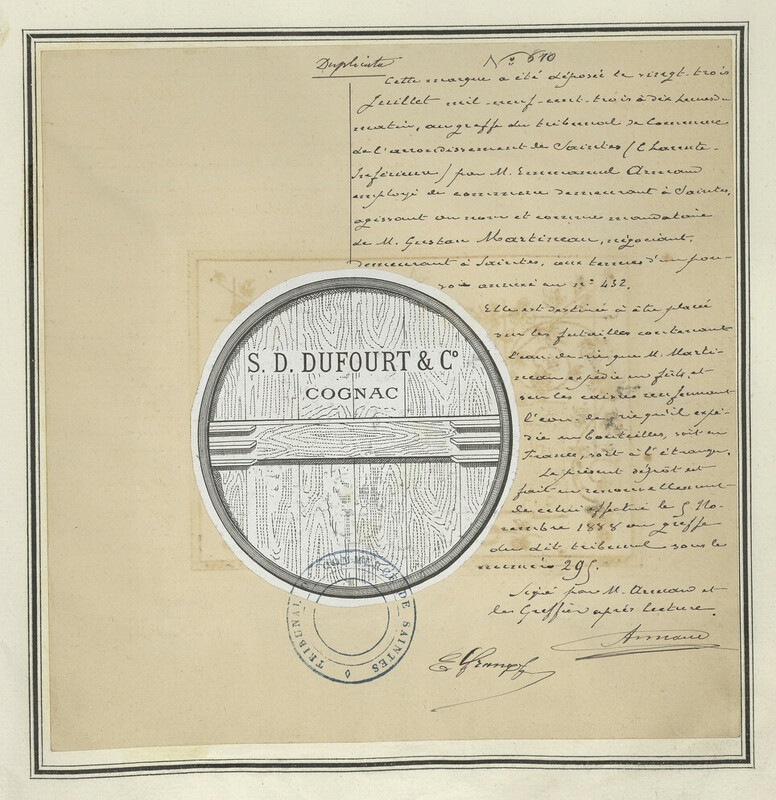 Duplicata
No 610
Cette marque a été déposée le vingt-trois
Juillet mil-neuf-cent-trois à dix heures du
matin, au greffe du tribunal de Commerce
de l'arrondissement de Saintes (Charente-
Inférieure) par M. Emmanuel Armand
employé de commerce demeurant à Saintes,
agissant au nom et comme mandataire
de M. Gustave Martineau, négociant,
demeurant à Saintes, aux termes d'un pou-
voir annexé au no 452.
Elle est destinée à être placée
sur les futailles contenant
l'eau-de-vie que M. Marti-
neau expédie en fûts, et
sur les caisses renfermant
l'eau-de-vie qu'il expé-
die en bouteilles, soit en
France, soit à l'étranger.
Le présent dépôt est
fait en renouvellement
de celui effectué le 5 No-
vembre 1888 au greffe
du dit tribunal sous le
numéro 295.
Signé par M. Armand et
le Greffier après lecture.
Armand
S. D. DUFOURT & Co
COGNAC
TRIBUNAL DE COMMERCE DE SAINTES